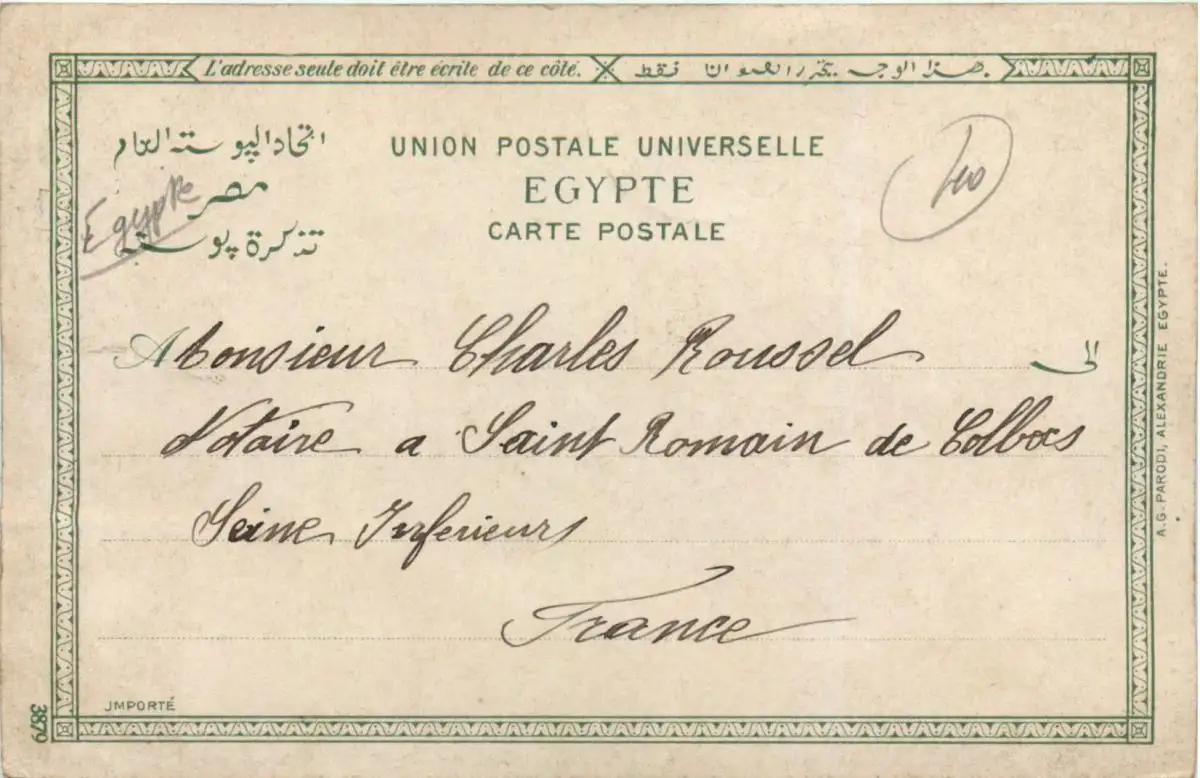 L'adresse seule doit être écrite de ce côté.
هذا الوجه يحرر العنوان فقط.
اتحاد البوسته العام
مصر
تذكرة پوسته
UNION POSTALE UNIVERSELLE
EGYPTE
CARTE POSTALE
Egypte
A Monsieur Charles Roussel
الى
Notaire a Saint Romain de Colbocs
Seine Inferieurs
France
JMPORTÉ
3879
A.G. PARODI, ALEXANDRIE EGYPTE.